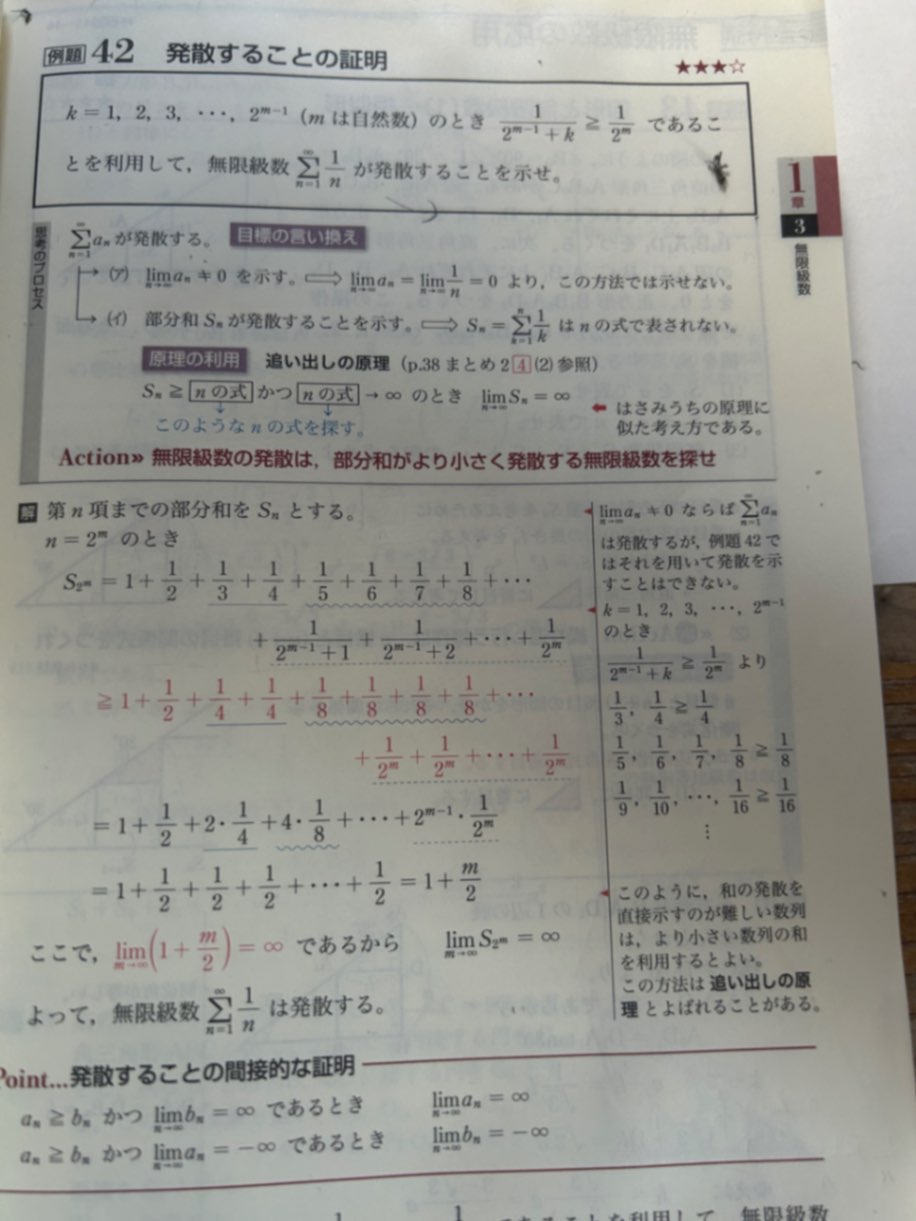 例題 42 発散することの証明 ★★★☆
k = 1, 2, 3, ･･･, 2^{m-1} (m は自然数) のとき 1/(2^{m-1}+k) ≧ 1/2^m であるこ
とを利用して，無限級数 \sum_{n=1}^{∞} 1/n が発散することを示せ。
1章
3
無限級数
思考のプロセス
\sum_{n=1}^{∞} a_n が発散する。 目標の言い換え
(ア) \lim_{n→∞} a_n ≠ 0 を示す。⟹ \lim_{n→∞} a_n = \lim_{n→∞} 1/n = 0 より，この方法では示せない。
(イ) 部分和 S_n が発散することを示す。⟹ S_n = \sum_{k=1}^{n} 1/k は n の式で表されない。
原理の利用 追い出しの原理 (p.38 まとめ 2 4 (2) 参照)
S_n ≧ n の式 かつ n の式 → ∞ のとき \lim_{n→∞} S_n = ∞
このような n の式を探す。
← はさみうちの原理に
似た考え方である。
Action» 無限級数の発散は，部分和がより小さく発散する無限級数を探せ
解 第 n 項までの部分和を S_n とする。
n = 2^m のとき
S_{2^m} = 1 + 1/2 + 1/3 + 1/4 + 1/5 + 1/6 + 1/7 + 1/8 + ･･･
+ 1/(2^{m-1}+1) + 1/(2^{m-1}+2) + ･･･ + 1/2^m
≧ 1 + 1/2 + 1/4 + 1/4 + 1/8 + 1/8 + 1/8 + 1/8 + ･･･
+ 1/2^m + 1/2^m + ･･･ + 1/2^m
= 1 + 1/2 + 2･1/4 + 4･1/8 + ･･･ + 2^{m-1}･1/2^m
= 1 + 1/2 + 1/2 + 1/2 + ･･･ + 1/2 = 1 + m/2
ここで，\lim_{m→∞}(1 + m/2) = ∞ であるから \lim_{m→∞} S_{2^m} = ∞
よって，無限級数 \sum_{n=1}^{∞} 1/n は発散する。
\lim_{n→∞} a_n ≠ 0 ならば \sum_{n=1}^{∞} a_n
は発散するが，例題 42 で
はそれを用いて発散を示
すことはできない。
k = 1, 2, 3, ･･･, 2^{m-1}
のとき
1/(2^{m-1}+k) ≧ 1/2^m より
1/3, 1/4 ≧ 1/4
1/5, 1/6, 1/7, 1/8 ≧ 1/8
1/9, 1/10, ･･･, 1/16 ≧ 1/16
⋮
このように，和の発散を
直接示すのが難しい数列
は，より小さい数列の和
を利用するとよい。
この方法は 追い出しの原
理 とよばれることがある。
Point...発散することの間接的な証明
a_n ≧ b_n かつ \lim_{n→∞} b_n = ∞ であるとき \lim_{n→∞} a_n = ∞
a_n ≧ b_n かつ \lim_{n→∞} a_n = −∞ であるとき \lim_{n→∞} b_n = −∞
であることを利用して，無限級数